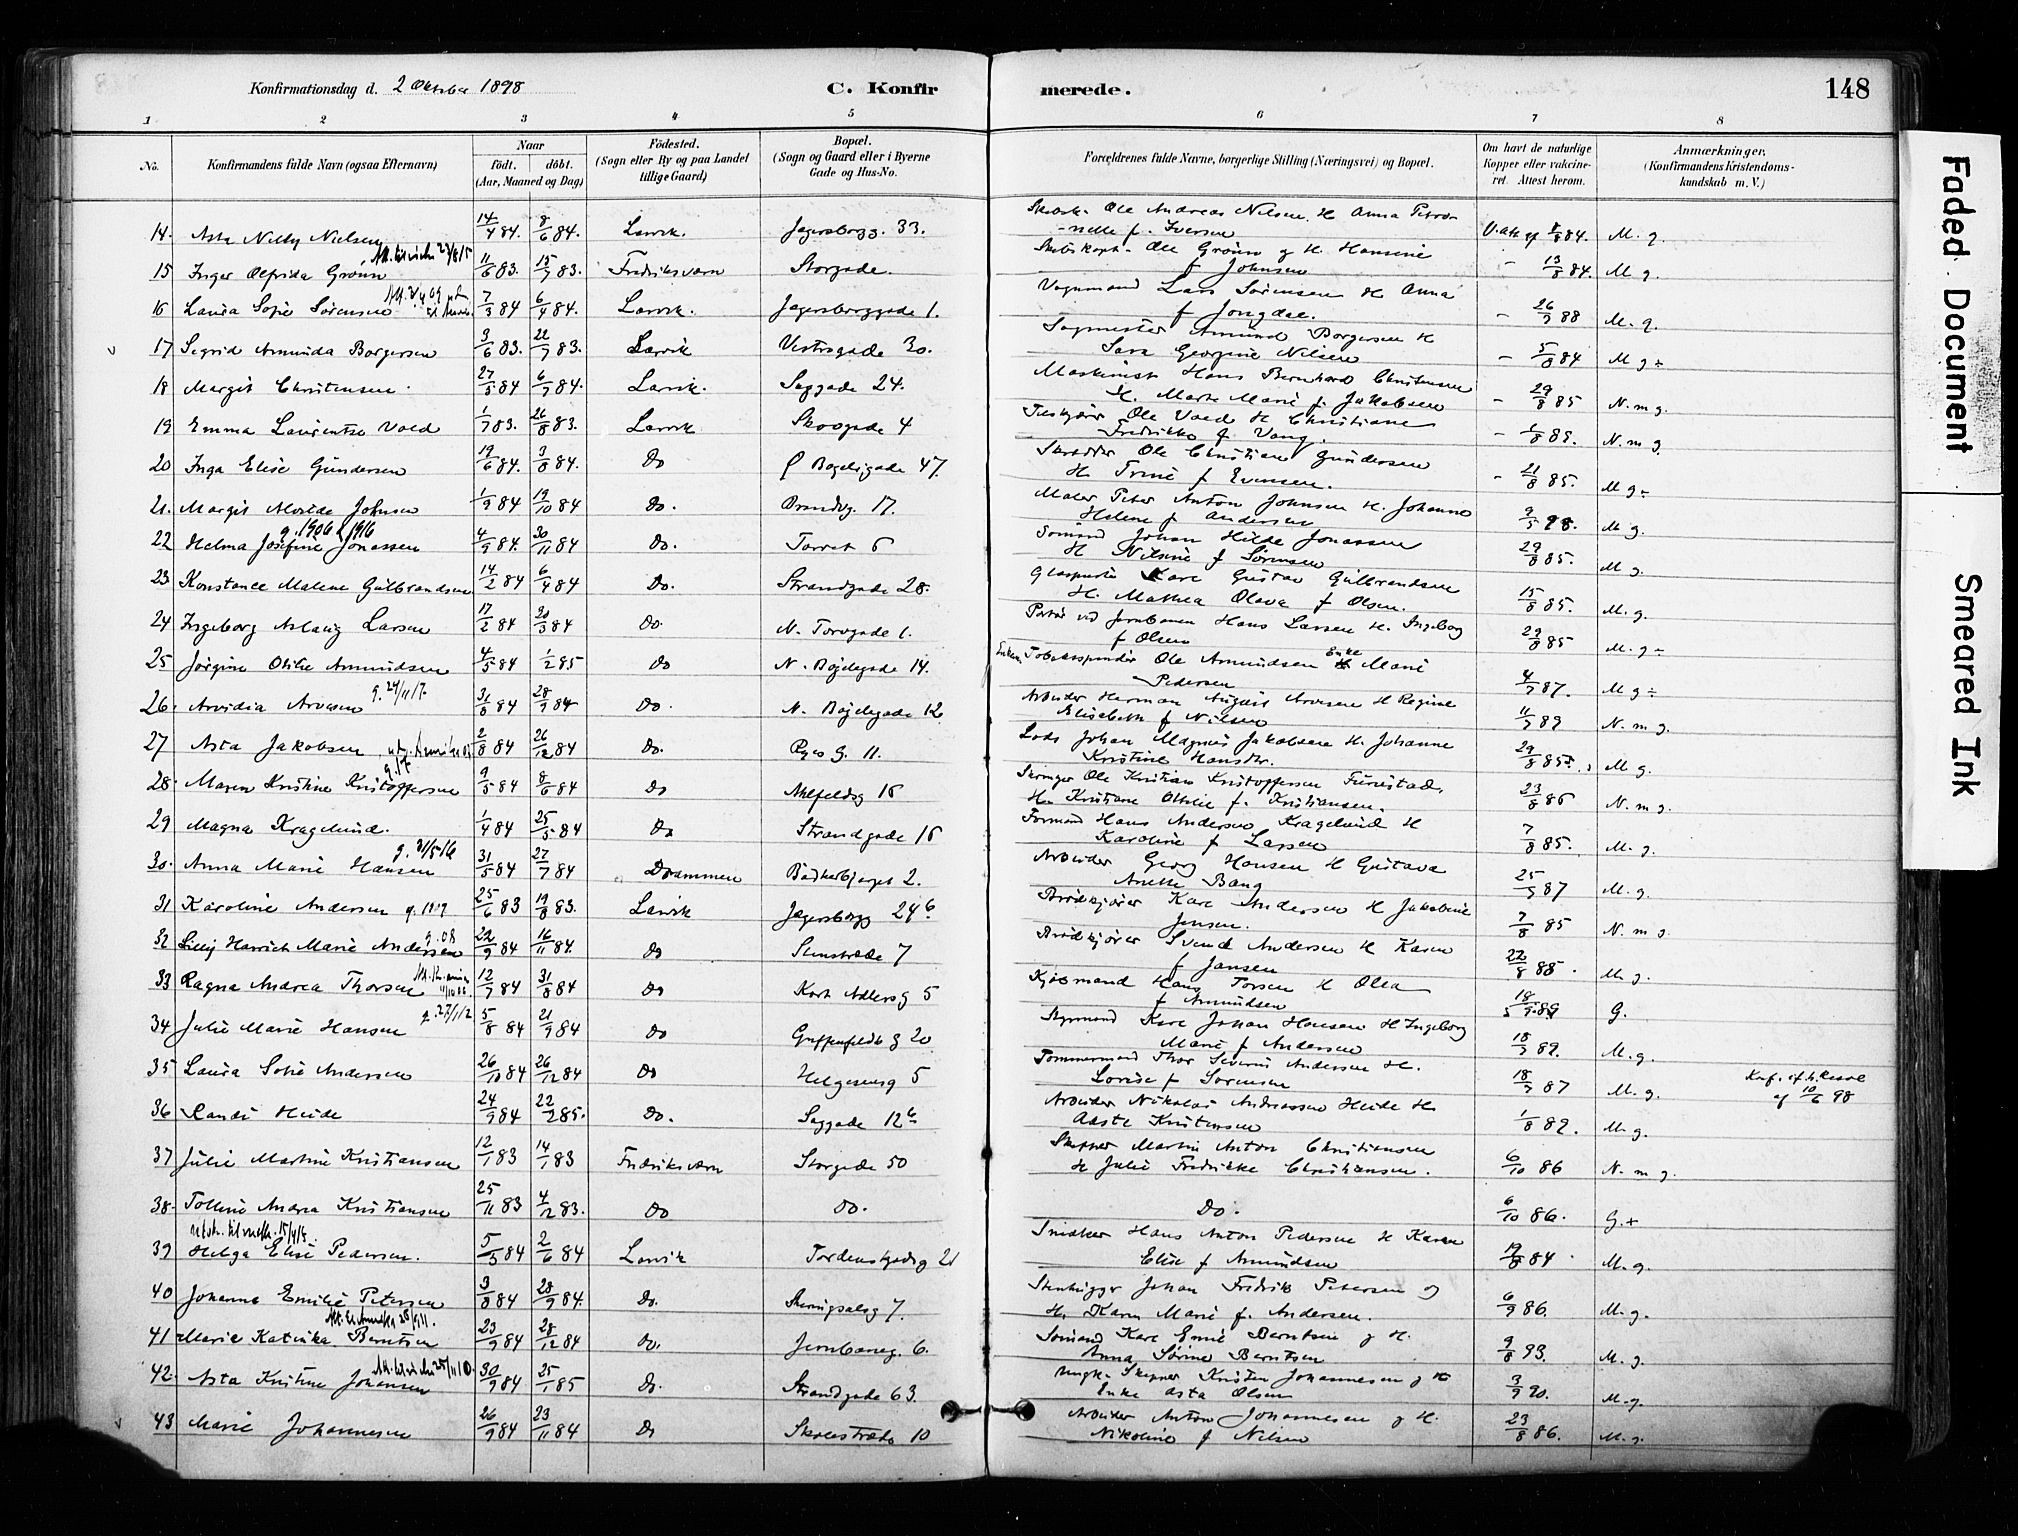 Konfirmationsdag d. 2 Oktober 1898
C. Konfirmerede.
148
1 2 3 4 5 6 7 8
No.
Konfirmandens fulde Navn (ogsaa Efternavn)
Naar
födt. döbt.
(Aar, Maaned og Dag)
Födested.
(Sogn eller By og paa Landet tillige Gaard)
Bopæl.
(Sogn og Gaard eller i Byerne Gade og Hus-No.
Forældrenes fulde Navne, borgerlige Stilling (Næringsvei) og Bopæl.
Om havt de naturlige Kopper eller vaccineret. Attest herom.
Anmærkninger.
(Konfirmandens Kristendomskundskab m. V.)
14. Asta Nelly Nielsen 14/4 84. 8/6 84. Larvik. Jegersborgg. 33. Ole Andreas Nilsen. H Anna Petronelle f. Iversen 84. M. g.
15 Inger Alfrida Grönn 11/6 83. 15/7 83. Fredriksværn Storgade. Ole Grönn g H. Hansine f Johnsen 13/8 84. M g.
16 Laura Sofie Sörensen 7/3 84 6/4 84. Larvik. Jegersborggade 1. Vognmand Lars Sörensen H Anna f Jongdal. 26/9 88 M. g.
17 Sigrid Amunda Borgersen 3/6 83. 22/7 83. Larvik Vestregade 30. Sagmester Amund Borgersen H Sara Georgine Nilsen 5/8 84 M g ÷
18 Margit Christensen 27/3 84 6/7 84. Larvik. Saggade 24. Maskinist Hans Bernhard Christensen H. Marte Marie f. Jakobsen 29/8 85 N. m g.
19 Emma Laurentse Vold 1/7 83. 26/8 83. Larvik Skovgade 4 Ole Vold H Christiane Fredrikke f. Vang. 1/8 85. N. m g.
20 Inga Elise Gundersen 19/6 84. 3/8 84. Do Ø Bøgelsgade 47. Skrædder Ole Christian Gundersen H. Trine f Evensen. 21/8 85. M g ÷
21. Margit Alvilde Johnsen 1/9 84 19/10 84 Do. Brandvg. 17. Maler Peter Anton Johnsen H. Johanne Helene f Andersen 9/5 98. M g.
22 Helma Josefine Jonassen g. 1906 1916 4/9 84. 30/11 84 Do. Torvet 6 Sömand Johan Hilde Jonassen H Nilsine f Sörensen 29/8 85. M g.
23 Konstance Malene Gulbrandsen 14/2 84 6/4 84 Do. Strandgade 28. Karl Gustav Gulbrandsen H. Mathea Olava f Olsen. 15/8 85. M. g.
24 Ingeborg Aslaug Larsen 17/2 84 30/3 84 Do. N. Torvgade 1. Portör ved Jernbanen Hans Larsen H. Ingeborg f Olsen 29/8 85 M. g ÷
25 Jörgine Otilie Amundsen 4/5 84 1/2 85 Do N. Böjelgade 14. Tobaksspinder Ole Amundsen Enke Marie Pedersen 4/7 87. M g ÷
26. Arvidia Arvesen g. 24/11/7. 31/8 84 28/9 84 Do. N. Böjelgade 12. Arbeider Herman August Arvesen H Regine Elisabeth f Nilsen 11/7 89 N. m g.
27 Asta Jakobsen 2/8 84 26/12 84 Do. Ryes g. 11. Lods Johan Magnus Jakobsen H. Johanne Kristine Hansdtr. 29/8 85. M g.
28. Maren Kristine Kristoffersen 9/5 84 8/6 84 Do Ahlfeldsg 16 Ole Kristian Kristoffersen Furustad, H. Kristiane Othilie f. Kristiansen. 23/8 86 N. m g.
29 Magna Kragelund. 1/4 84 25/5 84 Do Strandgade 16 Formand Hans Andersen Kragelund H Karoline f Larsen 7/8 85. M. g.
30. Anna Marie Hansen g. 31/5/16 31/5 84 27/7 84 Drammen Bödkerbjerget 2. Arbeider Georg Hansen H Gustava Anette Bang 25/9 87 M. g.
31 Karoline Andersen g. 1909 25/6 83 19/8 83. Larvik Jegersborgg 24b Brödkjörer Karl Andersen H Jakobine Jensen. 7/8 85 N. m g.
32 Lilly Henriette Marie Andersen g. 08 22/9 84 16/11 84. Do Stenstræde 7 Brödkjörer Svend Andersen H Karen f Jansen 22/8 85. M. g.
33 Ragna Andrea Thorsen 12/7 84 31/8 84 Do Kort Adlersg 5 Kjöbmand Hans Torsen H Olea f Amundsen 18/9 89 G.
34 Julie Marie Hansen g. 27/1/2 5/8 84 21/9 84 Do Griffenfeldts g 20 Styrmand Karl Johan Hansen H Ingeborg Marie f Andersen 18/7 89. M. g.
35 Laura Sofie Andersen 26/10 84 26/12 84 Do Helgesensg 5 Tömmermand Thor Severin Andersen H. Lovise f Sörensen 18/7 87 M. g. Konf. af k. Resol af 10/6 98
36 Randi Heide 24/9 84 22/2 85. Do. Saggade 12b Arbeider Nikolai Andreassen Heide H. Aaste Kristensen 1/8 89. M. g.
37 Julie Martine Kristiansen 12/1 83 14/1 83 Fredriksværn Storgade 50 Skipper Martin Anton Christiansen H Julie Fredrikke Christiansen. 6/10 86 N. m g.
38. Tolline Andrea Kristiansen 25/11 83 4/12 83. Do Do. Do. 6/10 86. G. +
39 Helga Elise Pedersen. 5/3 84 2/6 84 Larvik Tordenskjoldsg 21 Snedker Hans Anton Pedersen H Karen Elise f Amundsen 19/8 84 M. g.
40 Johanne Emilie Petersen 3/8 84 28/9 84. Do. Skiringsalsg 7. Stenhugger Johan Fredrik Petersen og H. Karen Marie f. Andersen. 6/9 86. M. g.
41 Marie Katinka Berntsen 23/9 84 28/12 84 Do. Jernbaneg. 6. Sömand Karl Emil Berntsen g H. Anna Sörine Berntsen 9/8 93. M. g.
42. Asta Kristine Johansen 30/9 84 25/1 85 Do. Strandgade 63. Skipper Kristen Johannesen g H Enke Asta Olsen 3/9 90. M. g.
43 Marie Johannesen 26/9 84 23/11 84 Do Skolestræde 10 Arbeider Anton Johannesen g H. Nikoline f Nilsen 23/8 86. M. g.
Faded Document
Smeared Ink